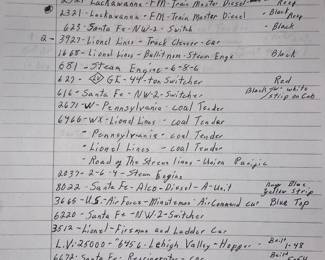 Lackawanna - FM - Train Master Diesel - Reep
2321 Lackawanna - FM - Train Master Diesel - Black Roof
623 Santa Fe - NW-2 - Switch - Black
3927 - Lionel Lines - Track Cleaner - Car
1665 - Lionel Lines - - Steam Eng - Black
681 - Steam Engine - 6-8-6
627 - GE - 44-ton Switcher Red
616 - Santa Fe - NW-2 - Switcher Black w- white strip on Cab
2671-W - Pennsylvania - coal Tender
6466-WX - Lionel Lines - coal Tender
- Pennsylvania - coal Tender
- Lionel Lines - coal Tender
- Road of The Streamliners - Union Pacific
2037 - 2-6-4 - Steam Engine
8022 - Santa Fe - Alco - Diesel - A-Unit Blue yellow strip
3665 - U.S. Air Force - Minuteman Air Command car Blue Top
6220 - Santa Fe - N-W-2 - Switcher
3512 - Lionel - Fireman and Ladder Car
L.V. 25000 - "6456 - Lehigh Valley - Hopper - Built 1-48
6672 - Santa Fe - Refrigerator - car Built 5-54